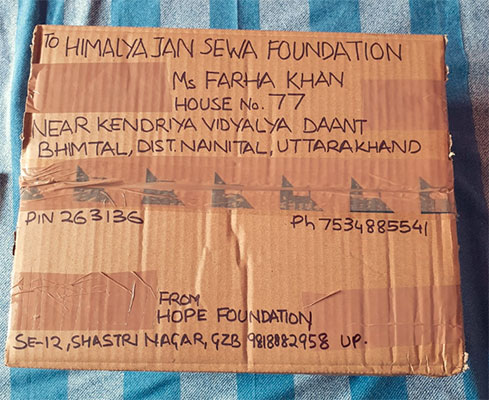 TO HIMALYA JAN SEWA FOUNDATION
Ms FARHA KHAN
HOUSE No. 77
NEAR KENDRIYA VIDYALYA DAANT
BHIMTAL, DIST. NAINITAL, UTTARAKHAND
PIN 263136 Ph 7534885541
FROM
HOPE FOUNDATION
SE-12, SHASTRI NAGAR, GZB 9818082958 UP.